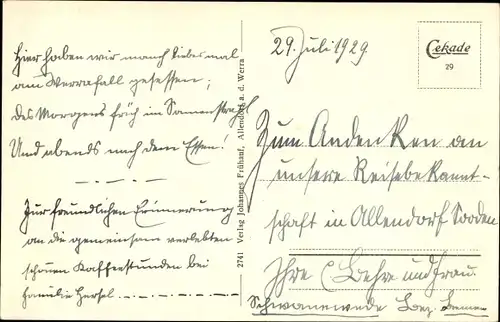 Hier haben wir manch liebes mal
am Werrafall gesessen;
Des Morgens früh im Sonnenstrahl
Und abends nach dem Essen!
Zur freundlichen Erinnerung
an die gemeinsam verlebten
schönen Kaffeestunden bei
Familie
2741 Verlag Johannes Frühauf, Allendorf a. d. Werra
29. Juli 1929
Cekade
29
Zum Andenken an
unsere Reisebekannt-
schaft in Allendorf Sooden
Ihre C. Behre und Frau
Schwanewede Bez. Bremen